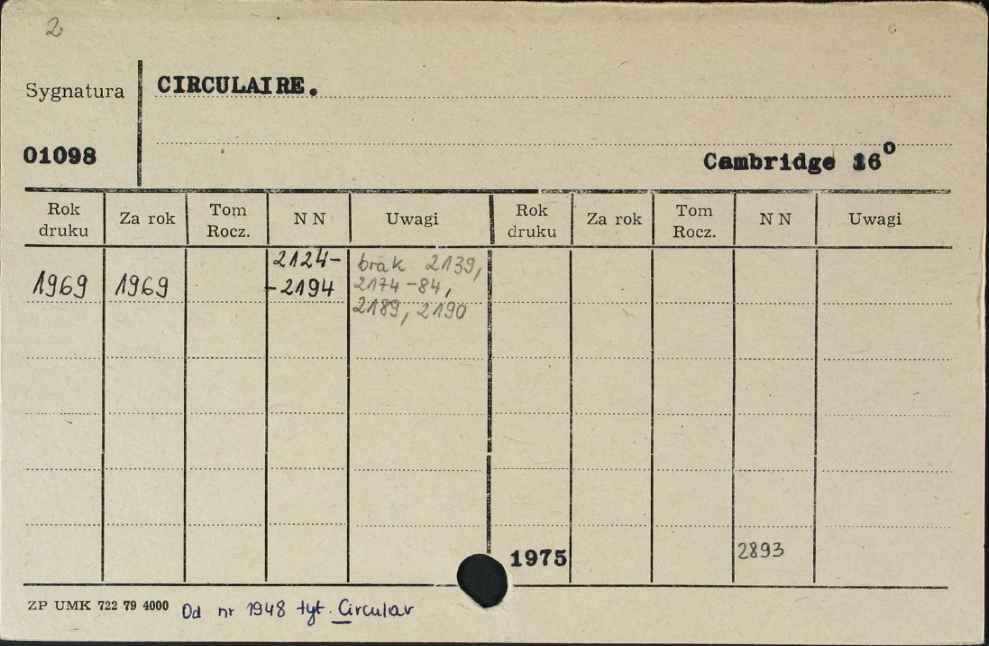 2
Sygnatura
CIRCULAIRE.
01098
Cambridge 16°
Rok druku Za rok Tom Rocz. N N Uwagi Rok druku Za rok Tom Rocz. N N Uwagi
1969 1969 2124- -2194 brak 2139, 2174-84, 2189, 2190
1975 2893
ZP UMK 722 79 4000 Od nr 1948 tyt. Circular